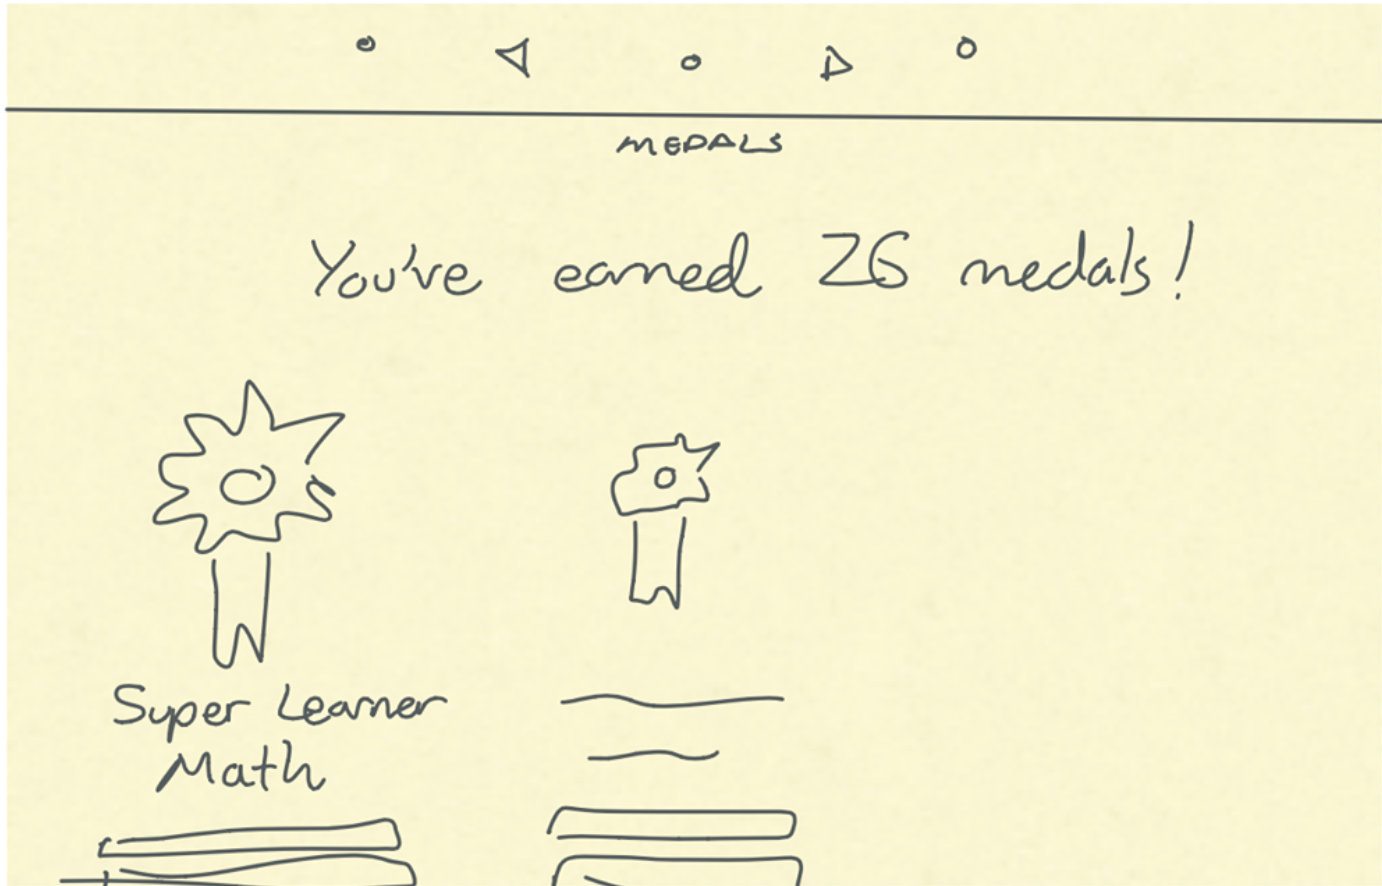 MEDALS
You've earned 26 medals!
Super Learner
Math